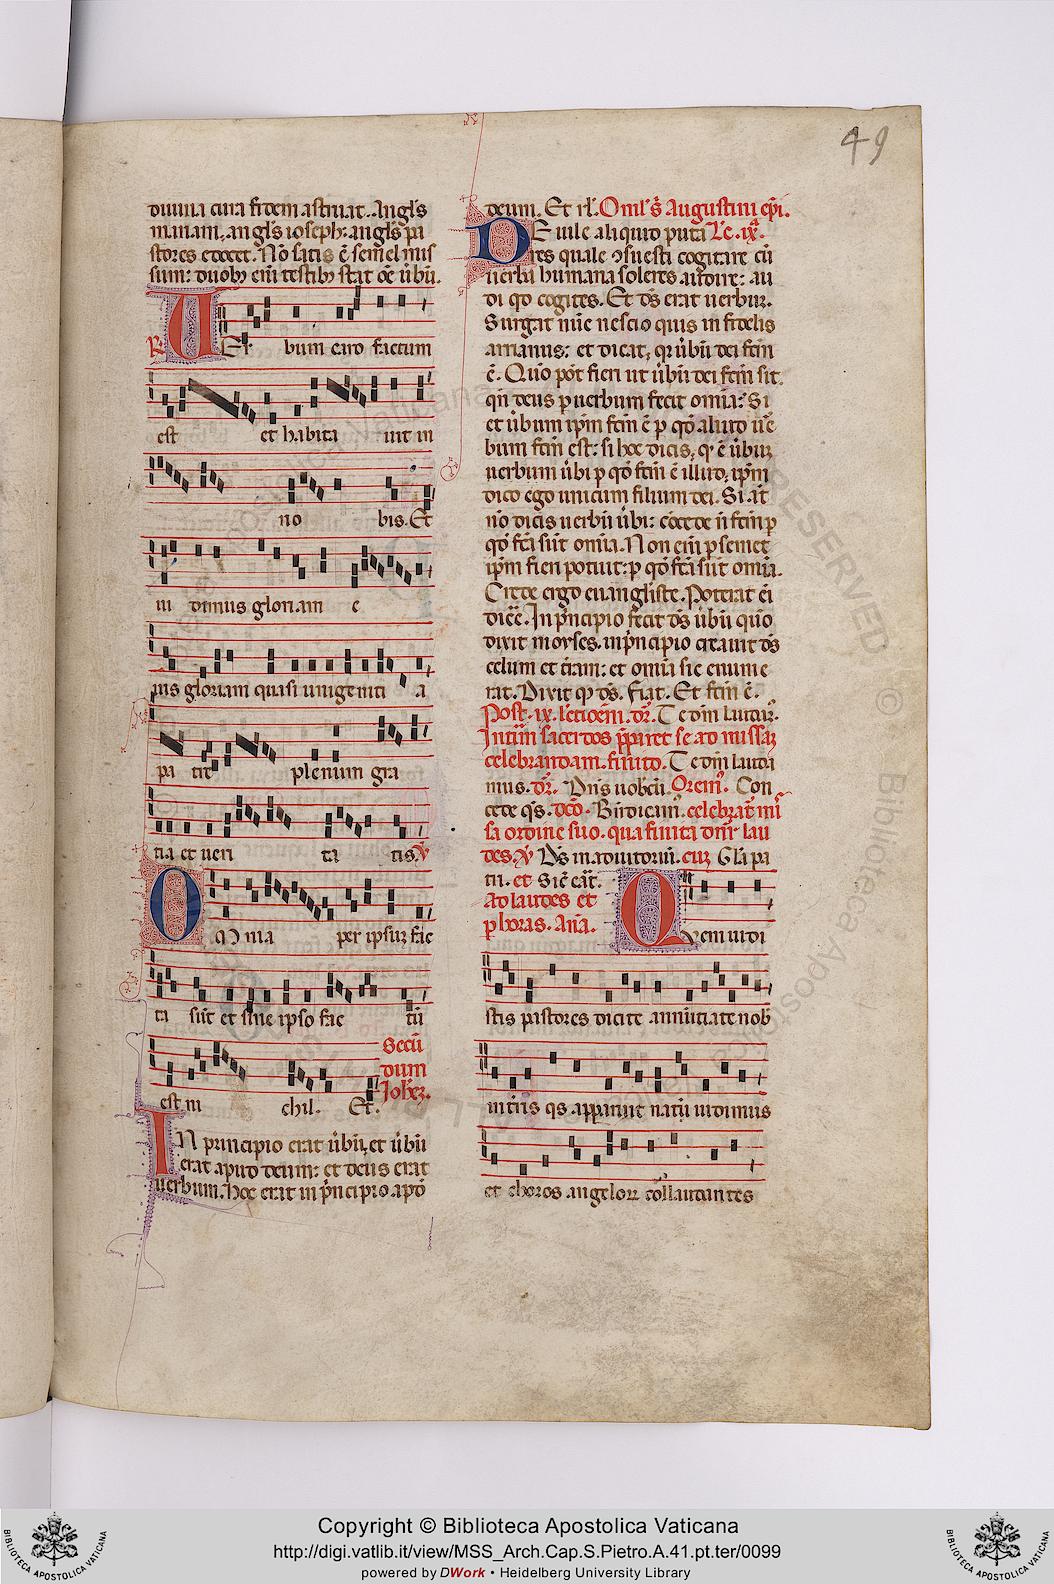 49
diuina cura fidem astruat. Angl's
mariam, angl's ioseph: angl's pa
stores edocet. Nō satis ē semel mis
sum: duobȝ eni testibȝ stat oē ūbū.
℟ UEr bum caro factum
est et habita uit in
no bis. Et
ui dimus gloriam e
ius gloriam quasi unigeniti a
pa tre plenum gra
tia et ueri ta tis. ℣
OMnia per ipsuȝ fac
ta sūt et sine ipso fac tū
est ni chil. Et.
Secū
dum
Joħeȝ.
IN principio erat ūbū, et ūbū
erat apud deum: et deus erat
uerbum. hoc erat in p̄ncipio apd
deum. Et rl'. Oml's s̄ Augustini ep̄i.
NE uile aliquid puta Lc̄. ix.
res quale ꝯsuesti cogitare cū
uerba humana soleres audire: au
di qd cogites. Et ds̄ erat uerbuȝ.
Surgat nūc nescio quis infidelis
arrianus: et dicat, qȝ ūbū dei fc̄m
ē. Quō pōt fieri ut ūbū dei fc̄m sit,
qn̄ deus p uerbum fecit omīa: Si
et ūbum ip̄m fc̄m ē p qd̄ aliud ūe
bum fc̄m est: si hoc dicis, qȝ ē ūbuȝ
uerbum ūbi p qd̄ fc̄m ē illud, ip̄m
dico ego unicum filium dei. Si aūt
nō dicis uerbū ūbi: cōcede nō fc̄m p
qd̄ fc̄a sūt omīa. Non eni p semet
ip̄m fieri potuit: p qd̄ fc̄a sūt omīa.
Crede ergo euangliste. Poterat eī
dicē. In p̄ncipio fecit ds̄ ūbū quō
dixit moyses. in p̄ncipio creauit ds̄
celum et t̄ram: et omīa sic enume
rat. Dixit qȝ ds̄. Fiat. Et fc̄m ē.
Post. ix. lectiōem. dr̄. Te dm̄ laudaȝ.
Intīm sacerdos p̄paret se ad missaȝ
celebrandam. finito. Te dm̄ lauda
mus. dr̄. Dn̄s uobcū. Orem'. Con
cede qs̄. dcō. Bn̄dicam'. celebrat' mi
sa ordine suo. qua finita dnr̄ lau
des. ℣ Ds̄ in adiutoriū. cuȝ Gl'a pa
tri. et Sic̄ erāt.
Ad laudes et
p horas. Aña.
QUem uidi
stis pastores dicite annūtiate nob
in terris qs apparuit natū uidimus
et choros angeloꝝ collaudantes
Copyright © Biblioteca Apostolica Vaticana
http://digi.vatlib.it/view/MSS_Arch.Cap.S.Pietro.A.41.pt.ter/0099
powered by DWork • Heidelberg University Library
BIBLIOTECA APOSTOLICA VATICANA
BIBLIOTECA APOSTOLICA VATICANA